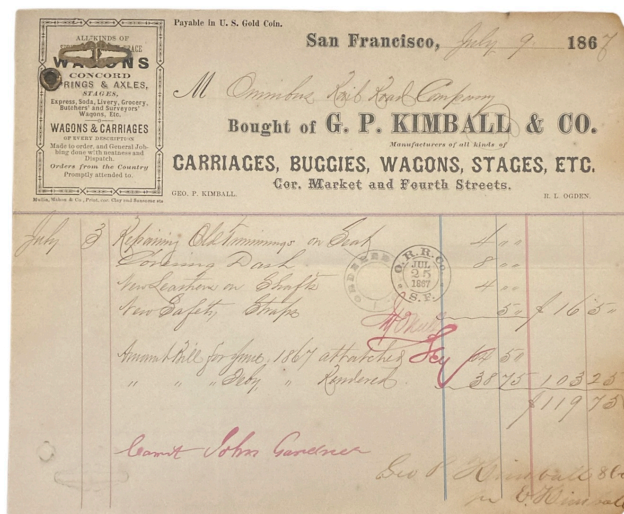 Payable in U. S. Gold Coin.
ALL KINDS OF
WAGONS
CONCORD
SPRINGS & AXLES,
STAGES,
Express, Soda, Livery, Grocery,
Butchers' and Surveyors'
Wagons, Etc.
WAGONS & CARRIAGES
OF EVERY DESCRIPTION
Made to order, and General Job-
bing done with neatness and
Dispatch.
Orders from the Country
Promptly attended to.
San Francisco, July 9 1867
M Omnibus Rail Road Company
Bought of G. P. KIMBALL & CO.
Manufacturers of all kinds of
CARRIAGES, BUGGIES, WAGONS, STAGES, ETC.
Cor. Market and Fourth Streets.
GEO. P. KIMBALL.
R. L. OGDEN.
July 3 Repairing Old Trimmings on Seat 4 00
Covering Dash 8 00
New Leathers on Shafts 4 00
New Safety Straps 50 $16 50
O. R. R. Co.
JUL
25
1867
S. F.
Amount Bill for June 1867 attatched 64 50
" " " Feby " Rendered 38 75 103 25
$119 75
John Gardner
Geo P Kimball & Co